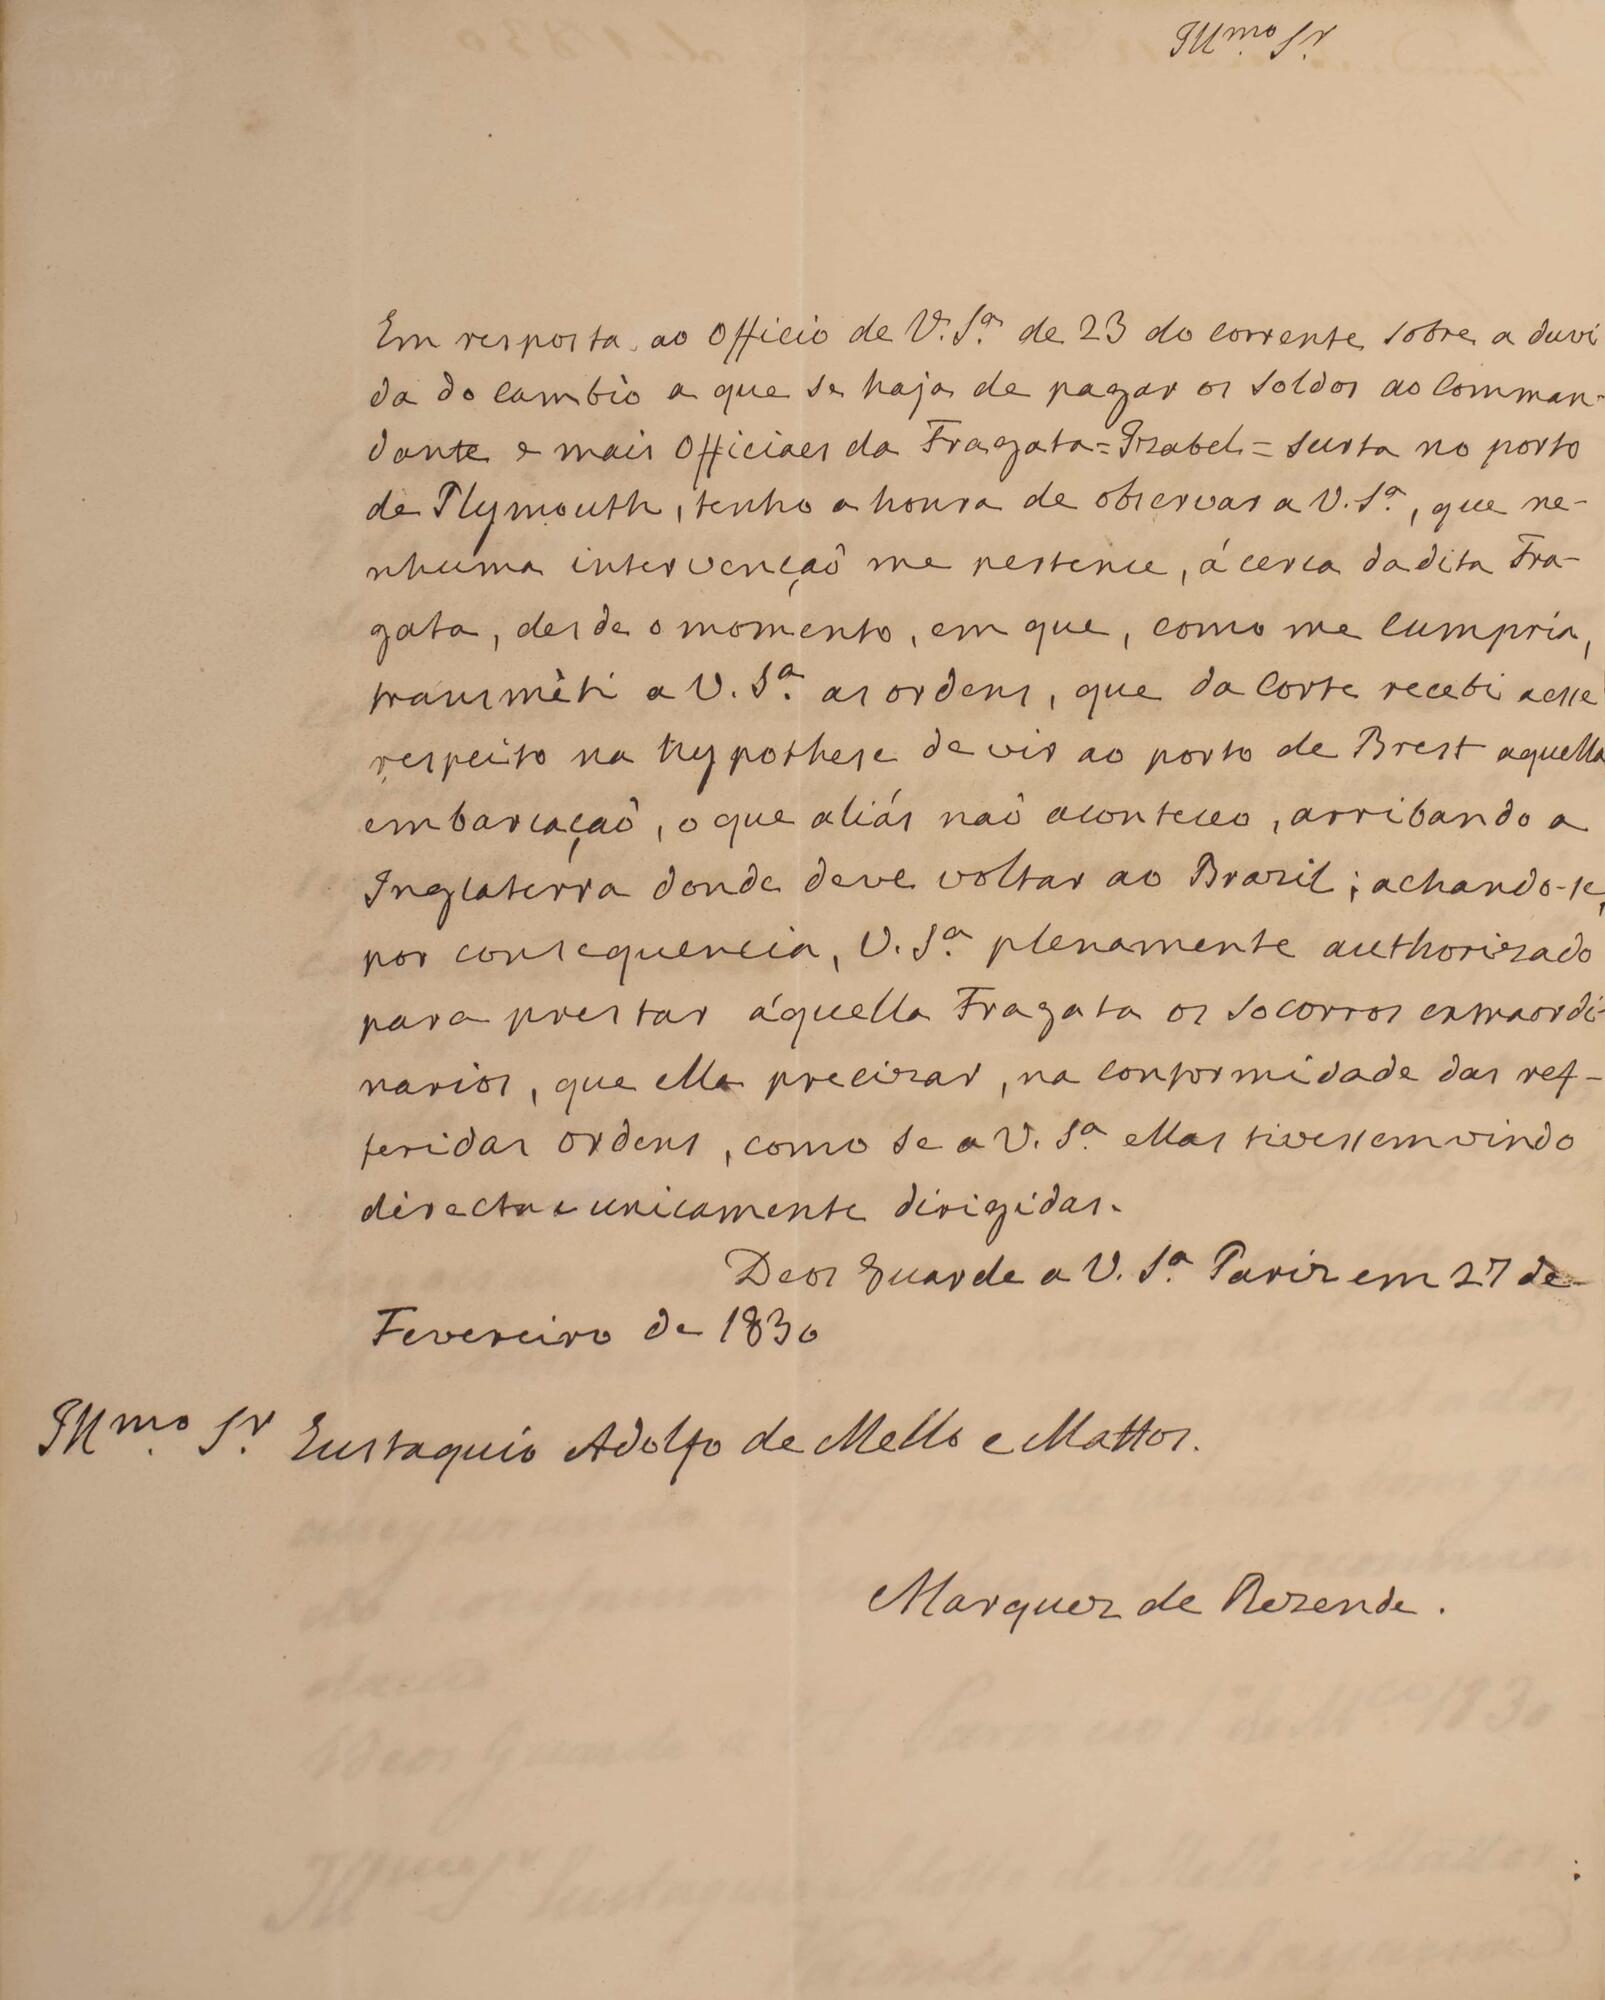 Illmo. Sr.
Em resposta ao Officio de V. Sa. de 23 do corrente sobre a duvi
da do cambio a que se haja de pagar os soldos ao Comman-
dante e mais Officiaes da Fragata = Izabel = surta no porto
de Plymouth, tenho a honra de observar a V. Sa., que ne-
nhuma intervençaõ me pertence, ácerca da dita Fra-
gata, desde o momento, em que, como me cumpria,
transmèti a V. Sa. as ordens, que da Corte recebi a esse
respeito na hypothese de vir ao porto de Brest aquella
embarcaçaõ, o que aliás naõ aconteceo, arribando a
Inglaterra donde deve voltar ao Brazil; achando-se,
por consequencia, V. Sa. plenamente authorizado
para prestar áquella Fragata os socorros extraordi-
narios, que ella precizar, na conformidade das ref-
feridas ordens, como se a V. Sa. ellas tivessem vindo
directa e unicamente dirigidas.
Deos Guarde a V. Sa. Pariz em 27 de
Fevereiro de 1830
Illmo. Sr. Eustaquio Adolfo de Mello e Mattos.
Marquez de Rezende.